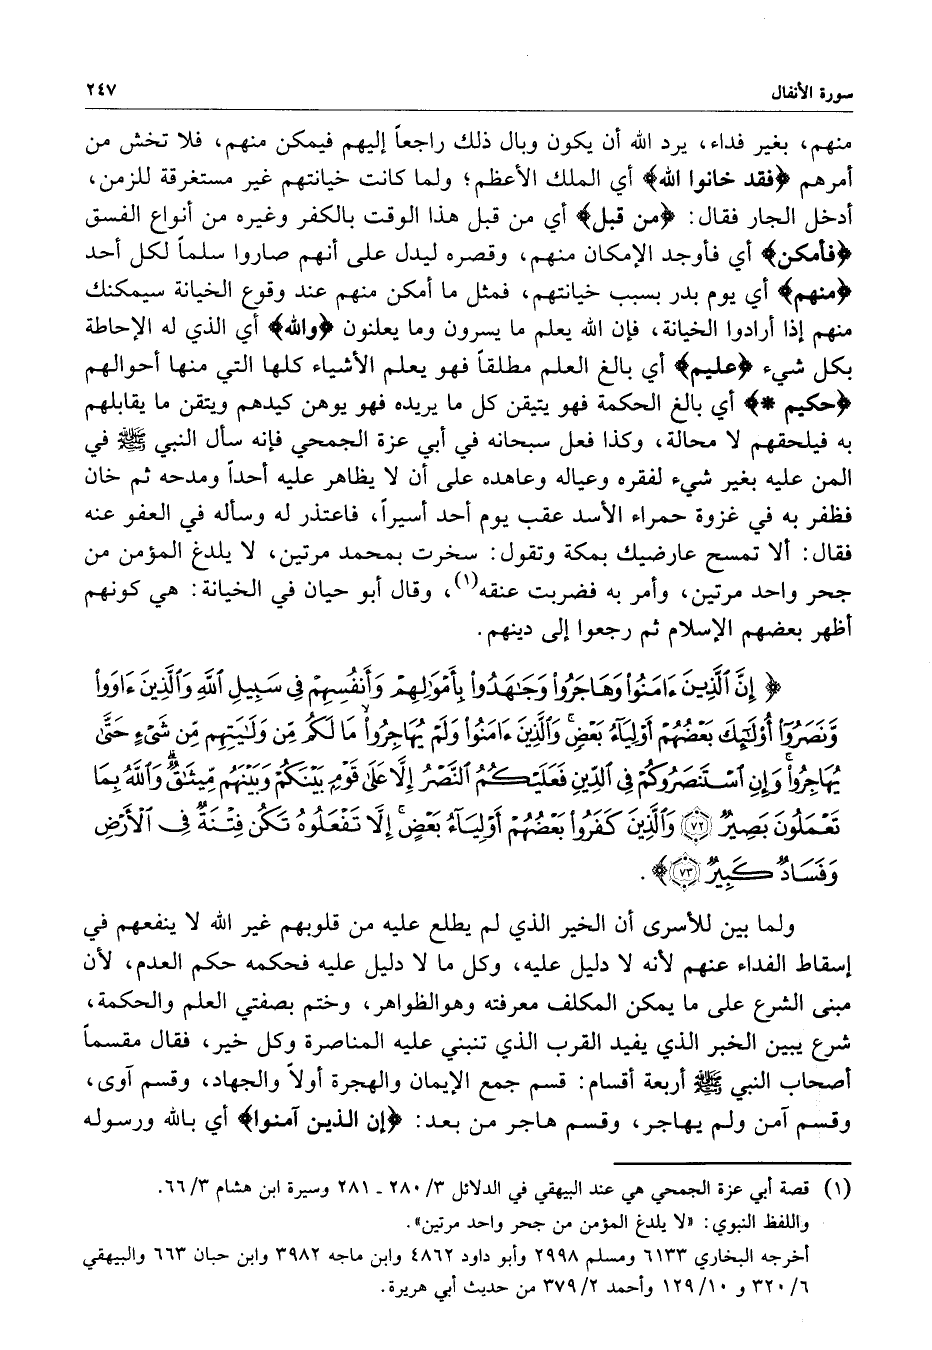 سورة الأنفال ٢٤٧
منهم، بغير فداء، يرد الله أن يكون وبال ذلك راجعاً إليهم فيمكن منهم، فلا تخش من
أمرهم ﴿فقد خانوا الله﴾ أي الملك الأعظم؛ ولما كانت خيانتهم غير مستغرقة للزمن،
أدخل الجار فقال: ﴿من قبل﴾ أي من قبل هذا الوقت بالكفر وغيره من أنواع الفسق
﴿فأمكن﴾ أي فأوجد الإمكان منهم، وقصره ليدل على أنهم صاروا سلماً لكل أحد
﴿منهم﴾ أي يوم بدر بسبب خيانتهم، فمثل ما أمكن منهم عند وقوع الخيانة سيمكنك
منهم إذا أرادوا الخيانة، فإن الله يعلم ما يسرون وما يعلنون ﴿والله﴾ أي الذي له الإحاطة
بكل شيء ﴿عليم﴾ أي بالغ العلم مطلقاً فهو يعلم الأشياء كلها التي منها أحوالهم
﴿حكيم *﴾ أي بالغ الحكمة فهو يتيقن كل ما يريده فهو يوهن كيدهم ويتقن ما يقابلهم
به فيلحقهم لا محالة، وكذا فعل سبحانه في أبي عزة الجمحي فإنه سأل النبي ﷺ في
المن عليه بغير شيء لفقره وعياله وعاهده على أن لا يظاهر عليه أحداً ومدحه ثم خان
فظفر به في غزوة حمراء الأسد عقب يوم أحد أسيراً، فاعتذر له وسأله في العفو عنه
فقال: ألا تمسح عارضيك بمكة وتقول: سخرت بمحمد مرتين، لا يلدغ المؤمن من
جحر واحد مرتين، وأمر به فضربت عنقه(١)، وقال أبو حيان في الخيانة: هي كونهم
أظهر بعضهم الإسلام ثم رجعوا إلى دينهم.
﴿إِنَّ ٱلَّذِينَ ءَامَنُوا۟ وَهَاجَرُوا۟ وَجَـٰهَدُوا۟ بِأَمْوَٰلِهِمْ وَأَنفُسِهِمْ فِى سَبِيلِ ٱللَّهِ وَٱلَّذِينَ ءَاوَوا۟
وَّنَصَرُوٓا۟ أُو۟لَـٰٓئِكَ بَعْضُهُمْ أَوْلِيَآءُ بَعْضٍ ۚ وَٱلَّذِينَ ءَامَنُوا۟ وَلَمْ يُهَاجِرُوا۟ مَا لَكُم مِّن وَلَـٰيَتِهِم مِّن شَىْءٍ حَتَّىٰ
يُهَاجِرُوا۟ ۚ وَإِنِ ٱسْتَنصَرُوكُمْ فِى ٱلدِّينِ فَعَلَيْكُمُ ٱلنَّصْرُ إِلَّا عَلَىٰ قَوْمٍۭ بَيْنَكُمْ وَبَيْنَهُم مِّيثَـٰقٌ ۗ وَٱللَّهُ بِمَا
تَعْمَلُونَ بَصِيرٌ ۝٧٢ وَٱلَّذِينَ كَفَرُوا۟ بَعْضُهُمْ أَوْلِيَآءُ بَعْضٍ ۚ إِلَّا تَفْعَلُوهُ تَكُن فِتْنَةٌ فِى ٱلْأَرْضِ
وَفَسَادٌ كَبِيرٌ ۝٧٣﴾.
ولما بين للأسرى أن الخير الذي لم يطلع عليه من قلوبهم غير الله لا ينفعهم في
إسقاط الفداء عنهم لأنه لا دليل عليه، وكل ما لا دليل عليه فحكمه حكم العدم، لأن
مبنى الشرع على ما يمكن المكلف معرفته وهوالظواهر، وختم بصفتي العلم والحكمة،
شرع يبين الخبر الذي يفيد القرب الذي تنبني عليه المناصرة وكل خير، فقال مقسماً
أصحاب النبي ﷺ أربعة أقسام: قسم جمع الإيمان والهجرة أولاً والجهاد، وقسم آوى،
وقسم آمن ولم يهاجر، وقسم هاجر من بعد: ﴿إن الذين آمنوا﴾ أي بالله ورسوله
(١) قصة أبي عزة الجمحي هي عند البيهقي في الدلائل ٣/ ٢٨٠ ـ ٢٨١ وسيرة ابن هشام ٣/ ٦٦.
واللفظ النبوي: «لا يلدغ المؤمن من جحر واحد مرتين».
أخرجه البخاري ٦١٣٣ ومسلم ٢٩٩٨ وأبو داود ٤٨٦٢ وابن ماجه ٣٩٨٢ وابن حبان ٦٦٣ والبيهقي
٦/ ٣٢٠ و ١٠/ ١٢٩ وأحمد ٢/ ٣٧٩ من حديث أبي هريرة.